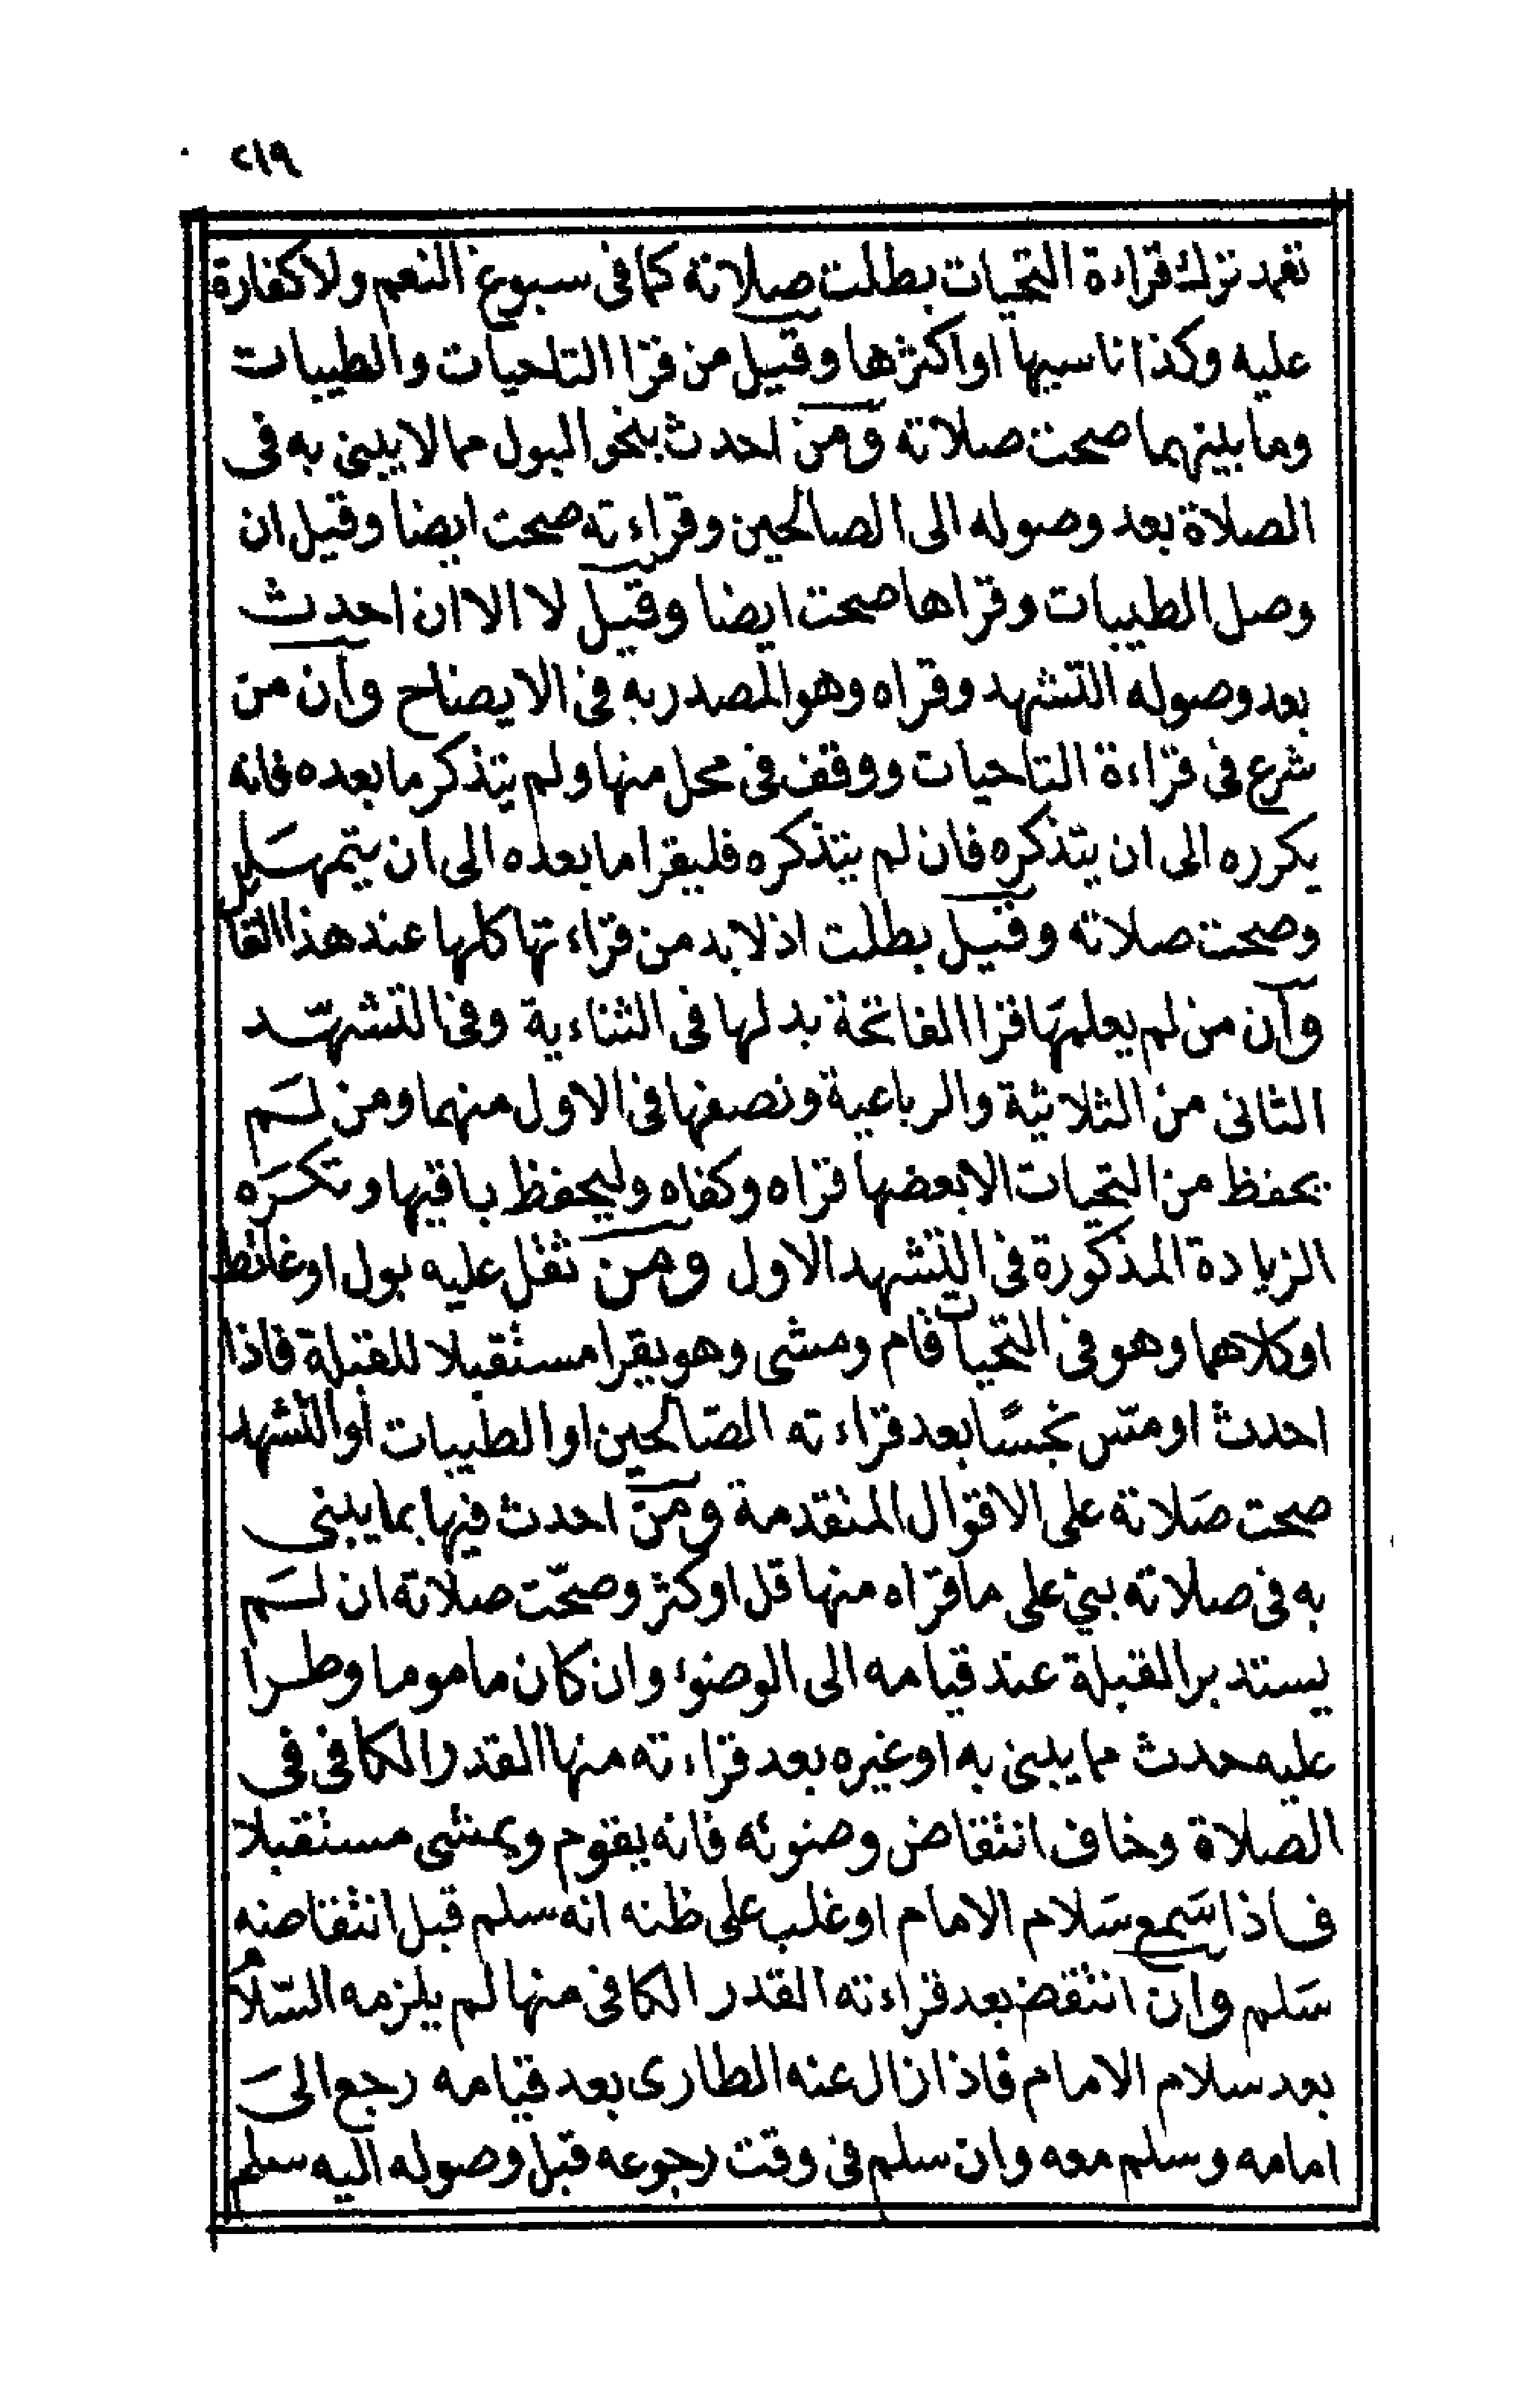 ٢١٩
تعمد ترك قراءة التحيات بطلت صلاته كما فى سبوغ النعم ولا كفارة
عليه وكذا ناسيها او اكثرها وقيل من قرا التاحيات والطيبات
وما بينهما صحت صلاته ومن احدث بنحو البول مما لا يبنى به فى
الصلاة بعد وصوله الى الصالحين وقراءته صحت ايضا وقيل ان
وصل الطيبات وقراها صحت ايضا وقيل لا الا ان احدث
بعد وصوله التشهد وقراه وهو المصدر به فى الايضاح وان من
شرع فى قراءة التاحيات ووقف فى محل منها ولم يتذكر ما بعده فانه
يكرره الى ان يتذكره فان لم يتذكره فليقرا ما بعده الى ان يتمها
وصحت صلاته وقيل بطلت اذ لا بد من قراءتها كلها عند هذا القائل
وان من لم يعلمها قرا الفاتحة بدلها فى الثناءية وفى التشهد
الثانى من الثلاثية والرباعية ونصفها فى الاول منهما ومن لم
يحفظ من التحيات الا بعضها قراه وكفاه وليحفظ باقيها وتكره
الزيادة المذكورة فى التشهد الاول ومن ثقل عليه بول او غائط
او كلاهما وهو فى التحيات قام ومشى وهو يقرا مستقبلا للقبلة فاذا
احدث او مس نجسًا بعد قراءته الصّالحين او الطيبات او التشهد
صحت صَلاته على الاقوال المتقدمة ومن احدث فيها بما يبنى
به فى صلاته بنى على ما قراه منها قل او كثر وصحّت صلاته ان لم
يستدبر القبلة عند قيامه الى الوضوء وان كان ماموما وطرا
عليه حدث مما يبنى به او غيره بعد قراءته منها القدر الكافى فى
الصلاة وخاف انتقاض وضوئه فانه يقوم ويمشى مستقبلا
فاذا سَمع سَلام الامام او غلب على ظنه انه سلم قبل انتقاضه
سَلم وان انتقض بعد قراءته القدر الكافى منها لم يلزمه السّلام
بعد سلام الامام فاذا زال عنه الطارى بعد قيامه رجع الىَ
امامه وسلم معه وان سلم فى وقت رجوعه قبل وصوله اليه سلم